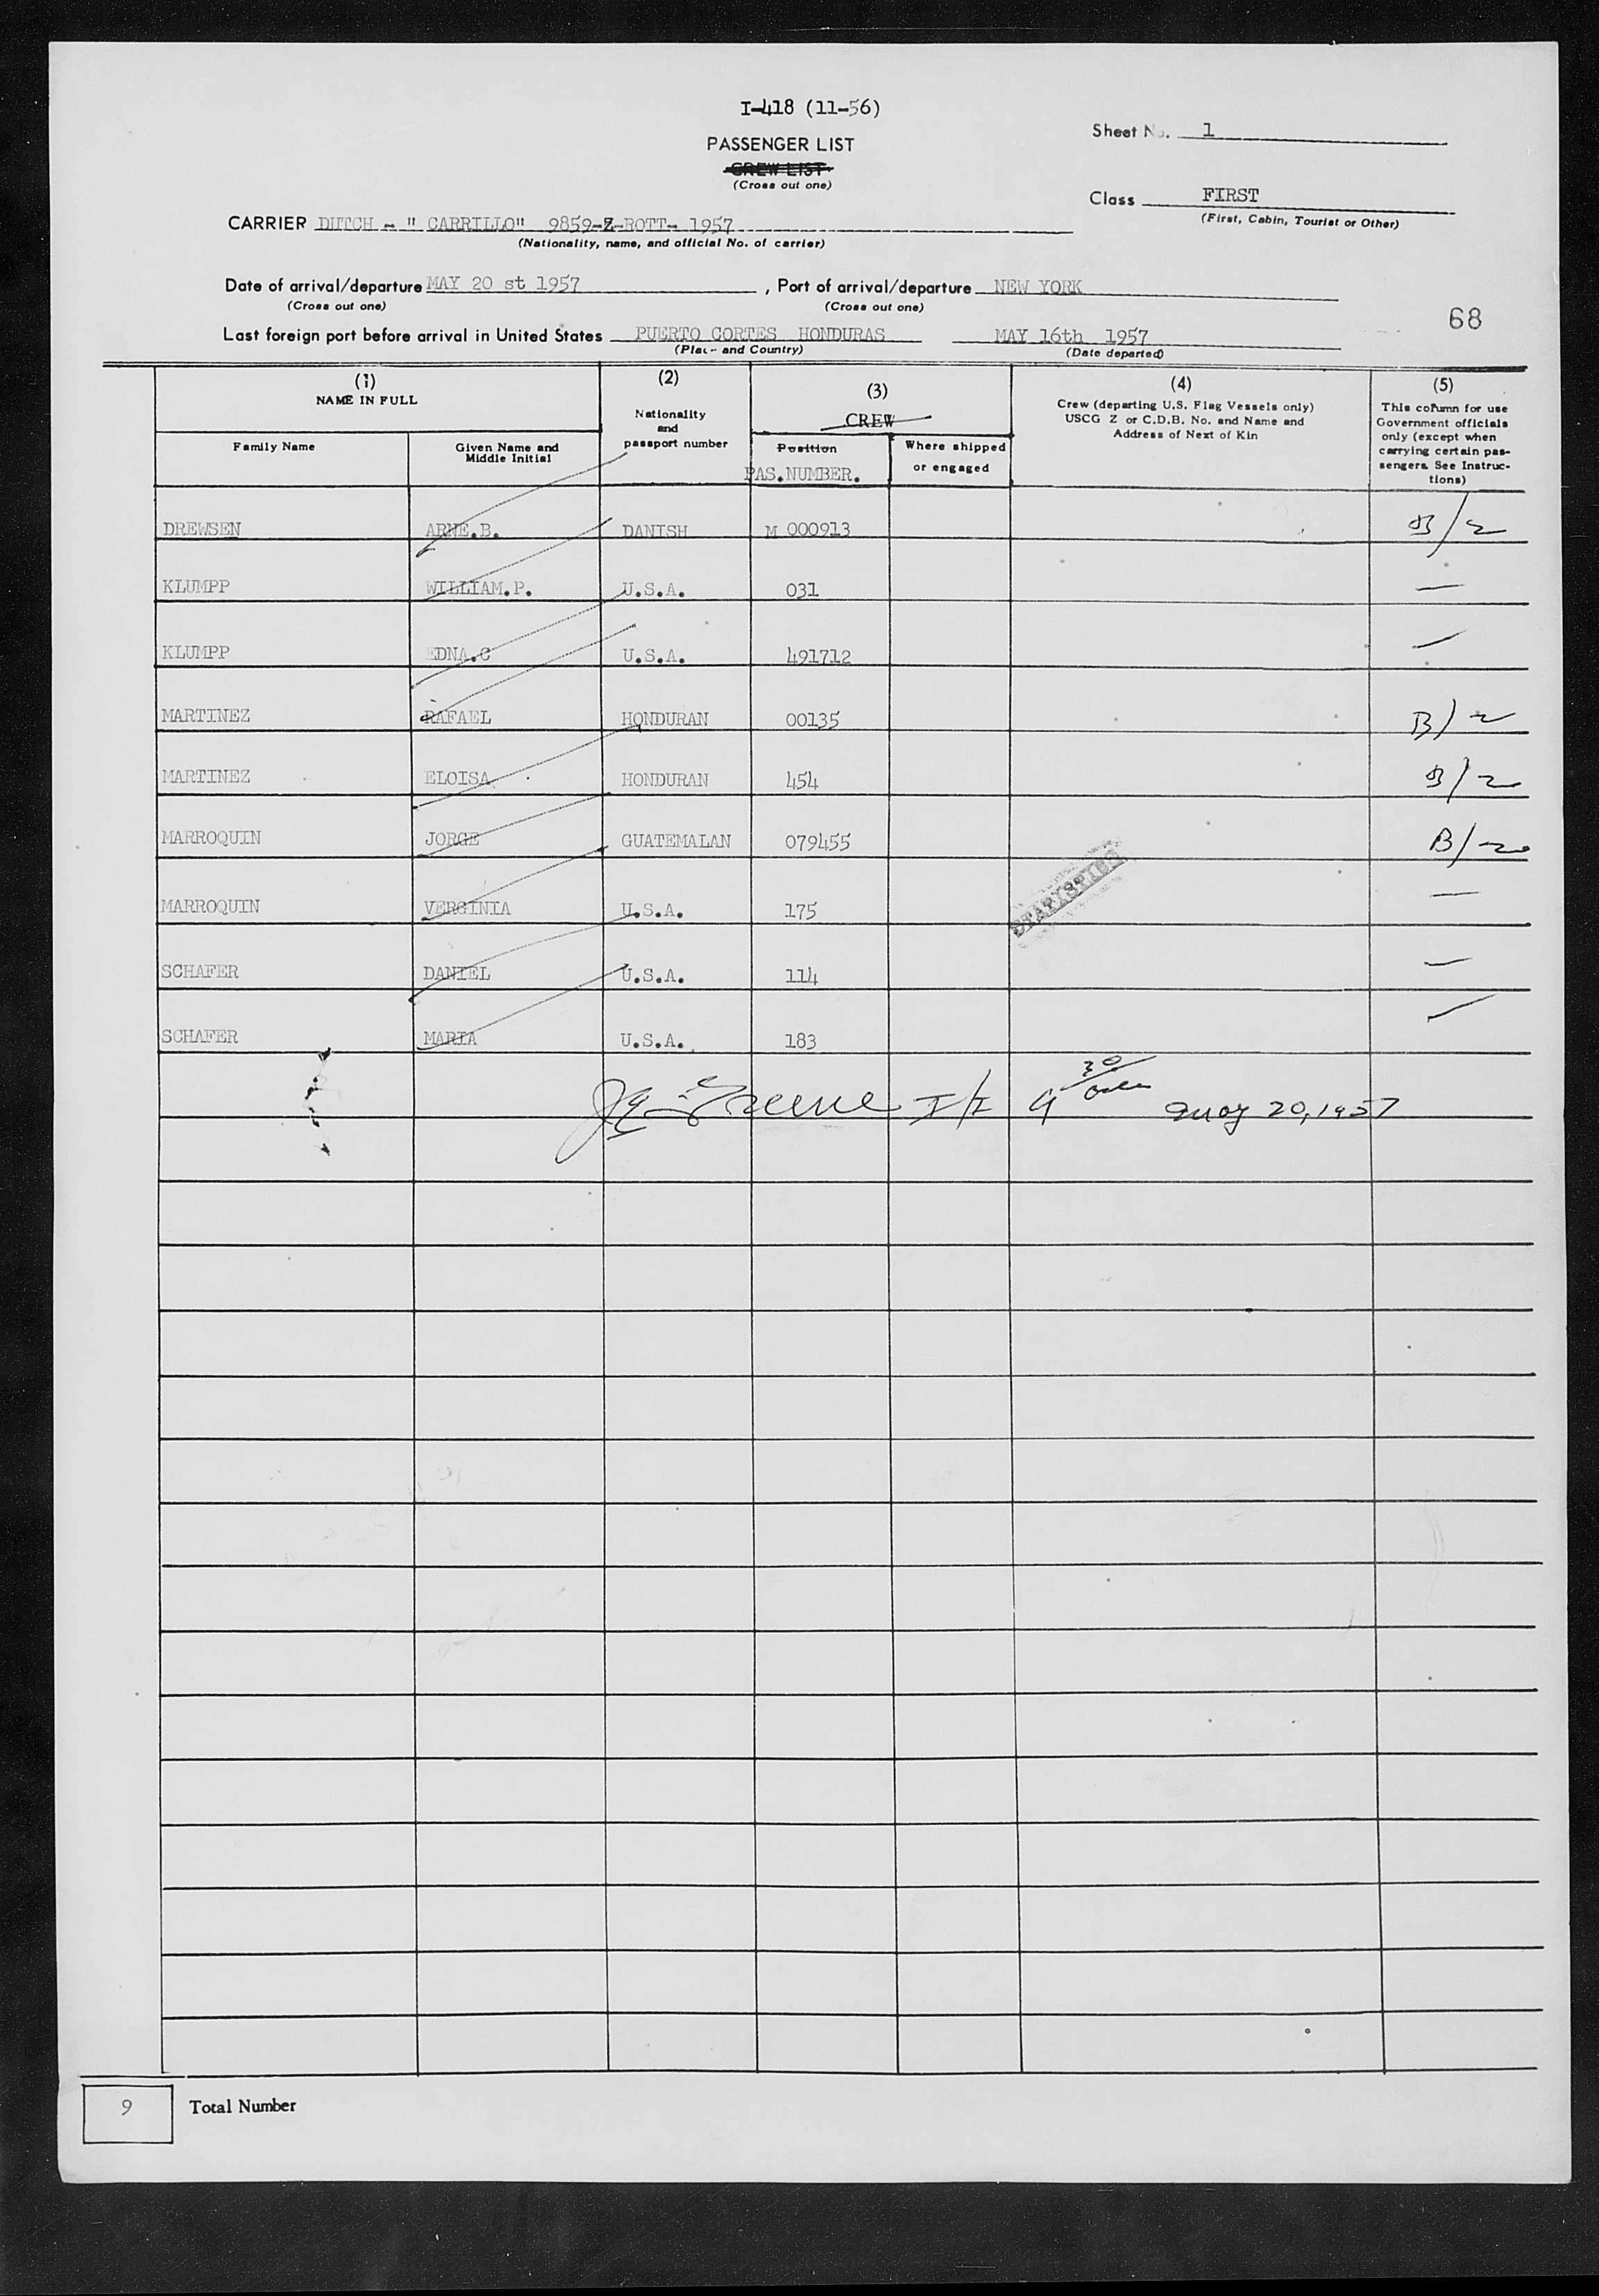 I-418 (11-56)
PASSENGER LIST
CREW LIST
(Cross out one)
Sheet No. 1
Class FIRST
(First, Cabin, Tourist or Other)
CARRIER DUTCH - " CARRILLO" 9859-Z-ROTT- 1957
(Nationality, name, and official No. of carrier)
Date of arrival/departure MAY 20 st 1957 , Port of arrival/departure NEW YORK
(Cross out one) (Cross out one)
68
Last foreign port before arrival in United States PUERTO CORTES HONDURAS MAY 16th 1957
(Place and Country) (Date departed)
(1) NAME IN FULL
Family Name
Given Name and Middle Initial
(2)
Nationality
and
passport number
(3)
CREW
Position
PAS.NUMBER.
Where shipped
or engaged
(4)
Crew (departing U.S. Flag Vessels only)
USCG Z or C.D.B. No. and Name and
Address of Next of Kin
(5)
This column for use
Government officials
only (except when
carrying certain pas-
sengers. See Instruc-
tions)
DREWSEN ARNE.B. DANISH M 000913 B/2
KLUMPP WILLIAM.P. U.S.A. 031 —
KLUMPP EDNA.C U.S.A. 491712 —
MARTINEZ RAFAEL HONDURAN 00135 B/2
MARTINEZ ELOISA HONDURAN 454 B/2
MARROQUIN JORGE GUATEMALAN 079455 B/2
MARROQUIN VERGINIA U.S.A. 175 —
STATISTICS
SCHAFER DANIEL U.S.A. 114 —
SCHAFER MARIA U.S.A. 183 —
Greene I/I 9 30 May 20, 1957
9 Total Number